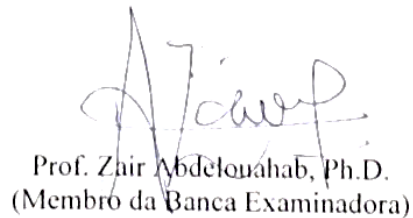 Prof. Zair Abdelouahab, Ph.D.
(Membro da Banca Examinadora)